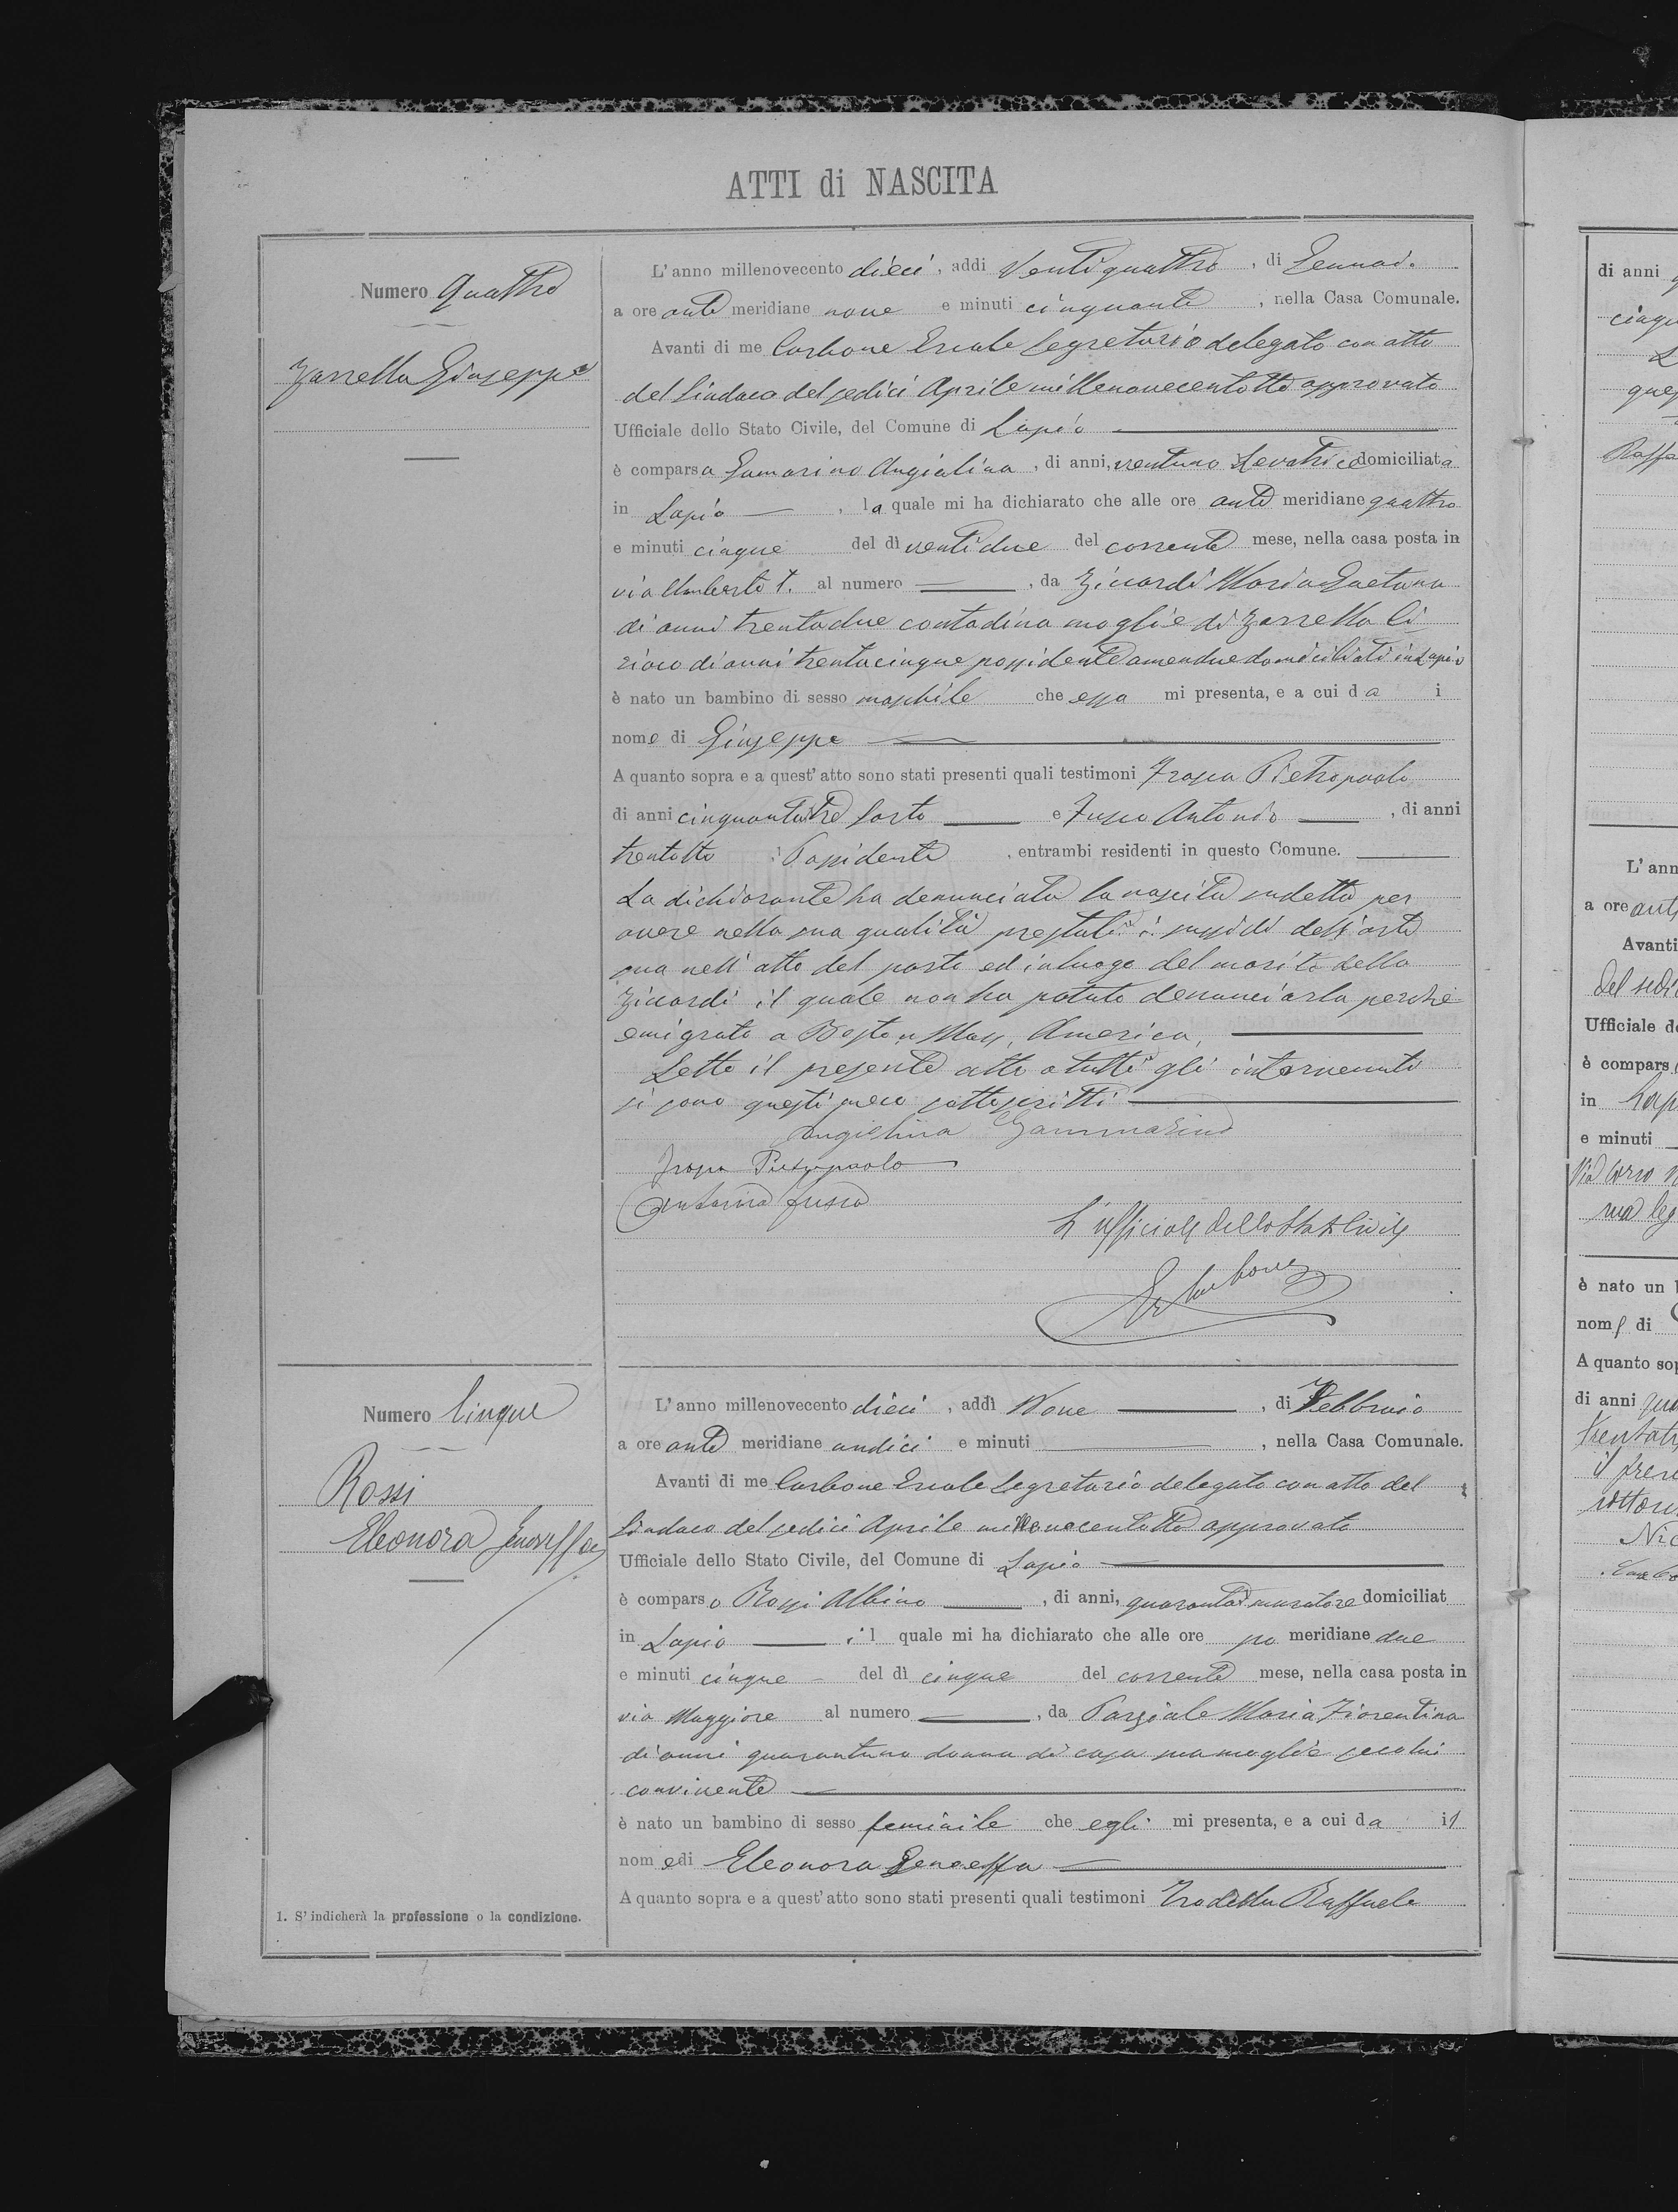 ATTI di NASCITA
Numero Quattro
Zarrella Giuseppe
L'anno millenovecento dieci, addì Ventiquattro, di Gennaio
a ore ante meridiane nove e minuti cinquanta, nella Casa Comunale.
Avanti di me Carbone Ercole Segretario delegato con atto
del Sindaco del sedici Aprile millenovecentotto approvato
Ufficiale dello Stato Civile, del Comune di Lapio
è comparsa Gamarino Angiolina, di anni, ventuno Levatrice domiciliata
in Lapio, la quale mi ha dichiarato che alle ore ante meridiane quattro
e minuti cinque del dì ventidue del corrente mese, nella casa posta in
via Umberto I. al numero, da Ziccardi Maria Gaetana
di anni trentadue contadina moglie di Zarrella Ci
riaco di anni trentacinque possidente amendue domiciliati in Lapio
è nato un bambino di sesso maschile che essa mi presenta, e a cui da i
nome di Giuseppe
A quanto sopra e a quest'atto sono stati presenti quali testimoni Pietropaolo
di anni cinquantatre Sarto e Fusco Antonio, di anni
trentotto Possidente, entrambi residenti in questo Comune.
La dichiarante ha denunciata la nascita sudetta per
avere nella sua qualità prestati i sussidi dell'arte
sua nell'atto del parto ed in luogo del marito della
Ziccardi il quale non ha potuto denunciarla perchè
emigrato a Boston Mass, America,
Letto il presente atto a tutti gli intervenuti
si sono questi meco sottoscritti
Angiolina Gammarino
Pietropaolo
Antonio Fusco
L'ufficiale dello Stato Civile
Numero Cinque
Rossi
Eleonora Genoveffa
L'anno millenovecento dieci, addì Nove, di Febbraio
a ore ante meridiane undici e minuti, nella Casa Comunale.
Avanti di me Carbone Ercole Segretario delegato con atto del
Sindaco del sedici Aprile millenovecentotto approvato
Ufficiale dello Stato Civile, del Comune di Lapio
è comparso Rossi Albino, di anni, muratore domiciliat
in Lapio, il quale mi ha dichiarato che alle ore po meridiane due
e minuti cinque del dì cinque del corrente mese, nella casa posta in
via Maggiore al numero, da Pasquale Maria Fiorentina
di anni quarantuno donna di casa sua moglie seco lui
convivente
è nato un bambino di sesso feminile che egli mi presenta, e a cui da il
nome di Eleonora Genoeffa
A quanto sopra e a quest'atto sono stati presenti quali testimoni Raffaele
1. S'indicherà la professione o la condizione.
di anni
L'ann
a ore ant
Avanti
Del sedi
Ufficiale d
è compars
in Lap
e minuti
Via Corso
è nato un
nome di
A quanto sop
di anni